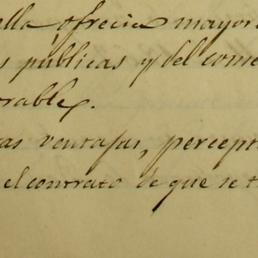 ella ofrecia mayor
s publicas y del come
rable.
as ventajas, percept
el contrato de que se t